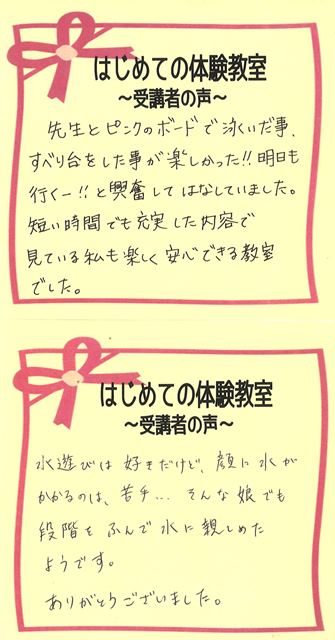 はじめての体験教室
～受講者の声～
先生とピンクのボードで泳いだ事、
すべり台をした事が楽しかった!!明日も
行くー!!と興奮してはなしていました。
短い時間でも充実した内容で
見ている私も楽しく安心できる教室
でした。
はじめての体験教室
～受講者の声～
水遊びは好きだけど、顔に水が
かかるのは、苦手... そんな娘でも
段階をふんで水に親しめた
ようです。
ありがとうございました。